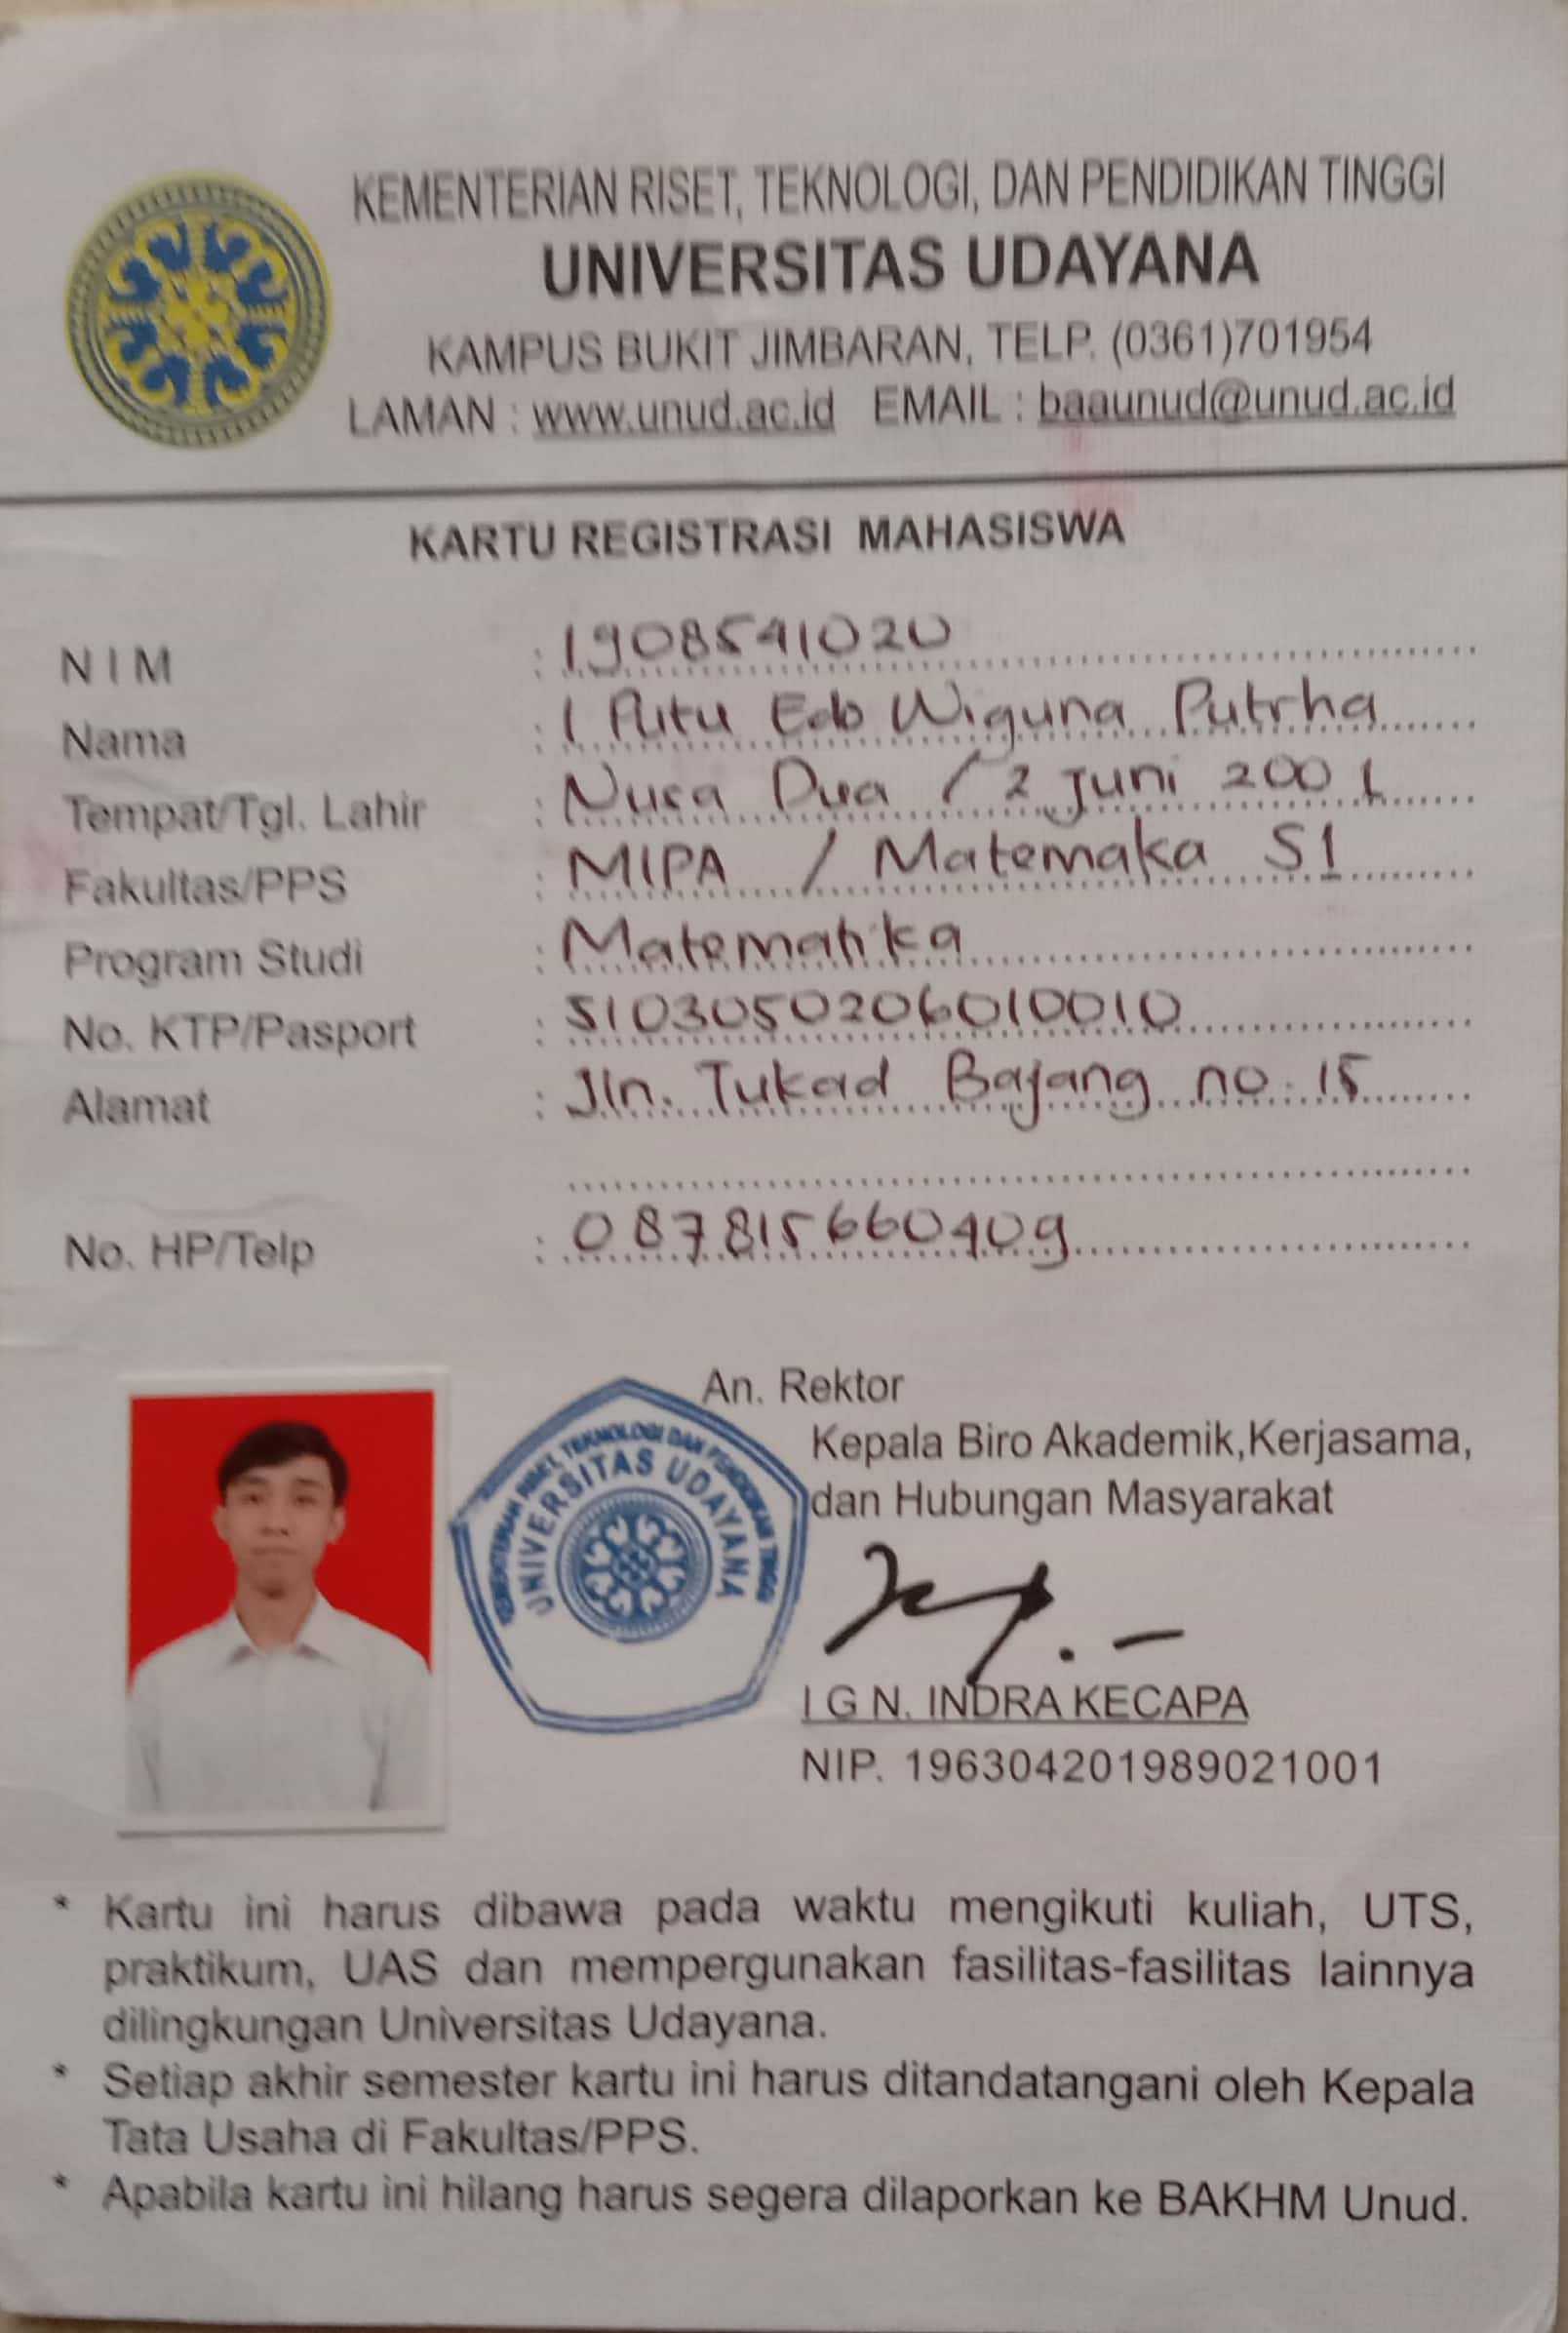 KEMENTERIAN RISET, TEKNOLOGI, DAN PENDIDIKAN TINGGI
UNIVERSITAS UDAYANA
KAMPUS BUKIT JIMBARAN, TELP. (0361)701954
LAMAN : www.unud.ac.id EMAIL : baaunud@unud.ac.id
KARTU REGISTRASI MAHASISWA
N I M : 1908541020
Nama : I Putu Edo Wiguna Putrha
Tempat/Tgl. Lahir : Nusa Dua / 2 Juni 2001
Fakultas/PPS : MIPA / Matemaka S1
Program Studi : Matematika
No. KTP/Pasport : 5103050206010010
Alamat : Jln. Tukad Bajang no. 15
No. HP/Telp : 087815660409
An. Rektor
Kepala Biro Akademik,Kerjasama,
dan Hubungan Masyarakat
KEMENTERIAN RISET, TEKNOLOGI DAN PENDIDIKAN TINGGI
UNIVERSITAS UDAYANA
I G N. INDRA KECAPA
NIP. 196304201989021001
* Kartu ini harus dibawa pada waktu mengikuti kuliah, UTS,
praktikum, UAS dan mempergunakan fasilitas-fasilitas lainnya
dilingkungan Universitas Udayana.
* Setiap akhir semester kartu ini harus ditandatangani oleh Kepala
Tata Usaha di Fakultas/PPS.
* Apabila kartu ini hilang harus segera dilaporkan ke BAKHM Unud.